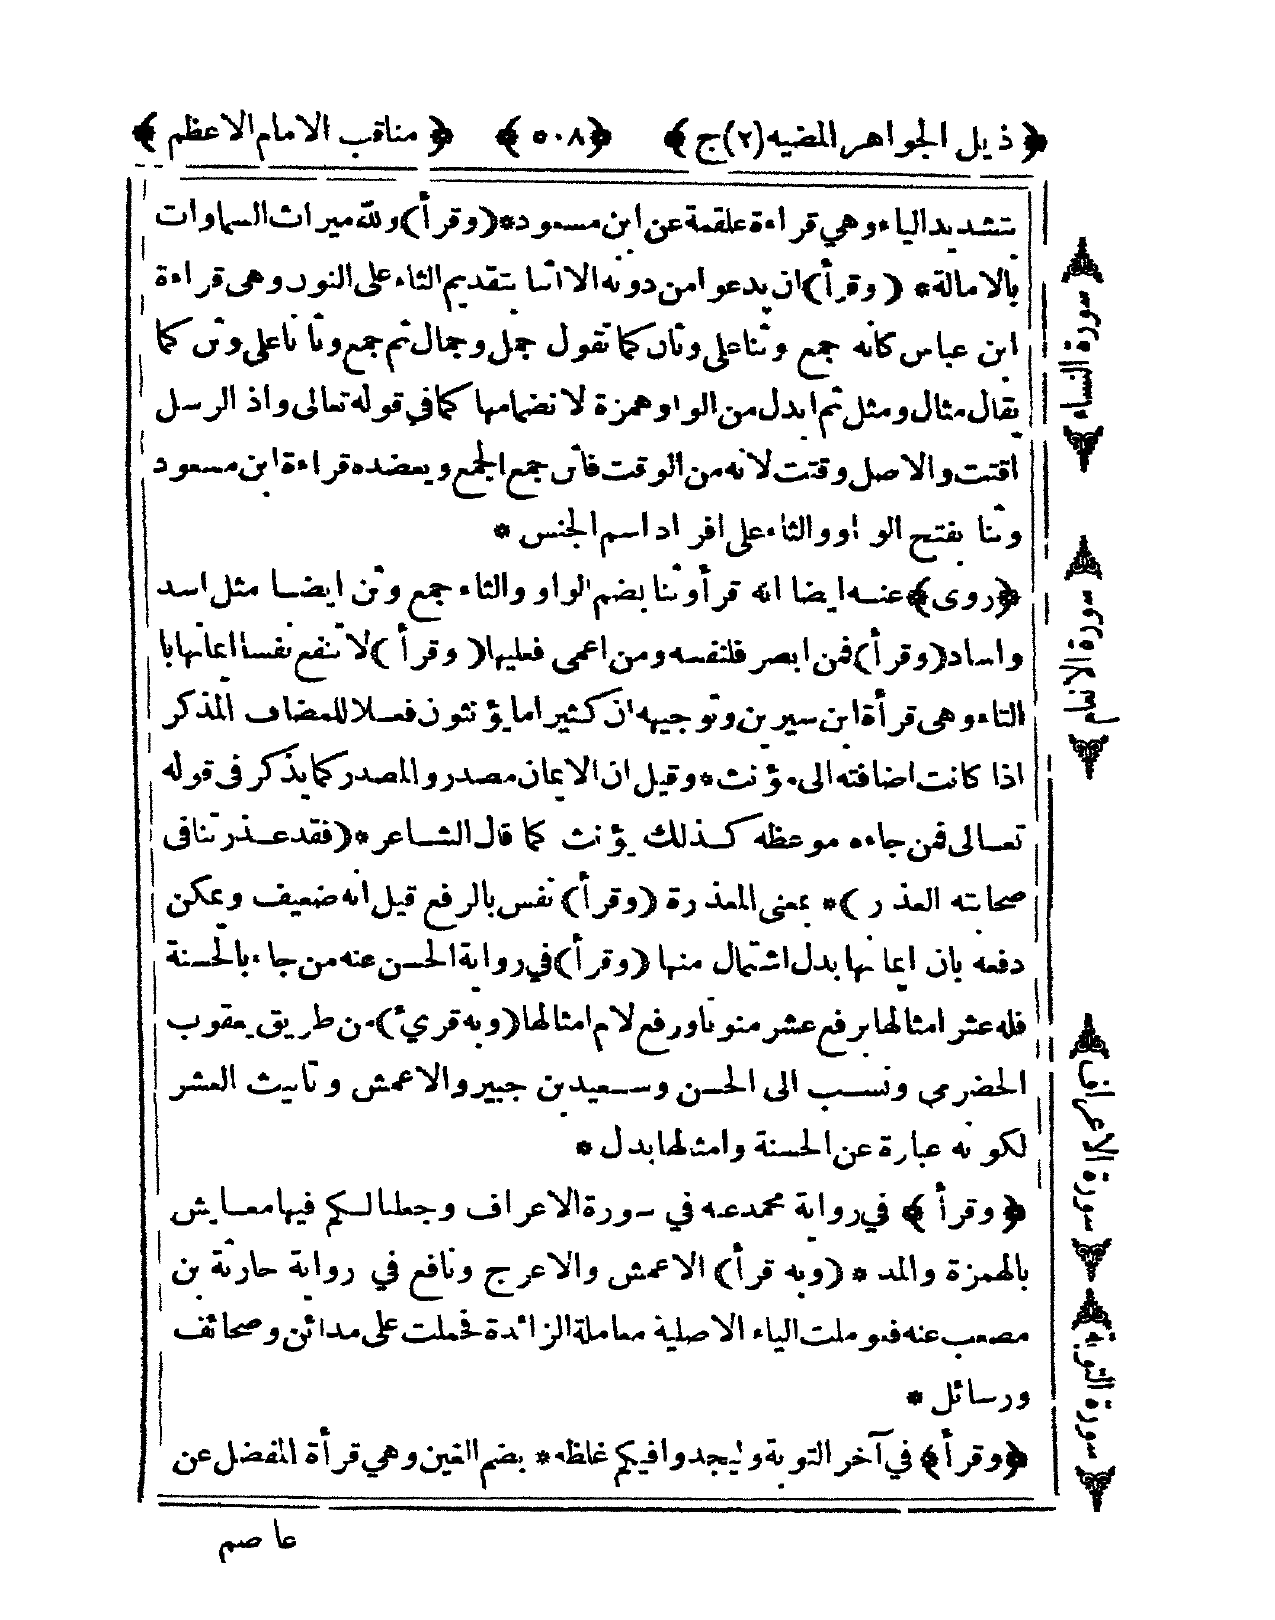 ﴿ ذيل الجواهر المضيه (٢) ج ﴾ ﴿ ٥٠٨ ﴾ ﴿ مناقب الامام الاعظم ﴾
بتشديد الياء وهي قراءة علقمة عن ابن مسعود * (وقرأ) ولله ميراث السماوات
بالامالة * (وقرأ) ان يدعوا من دونه الا اثنا بتقديم الثاء على النون وهي قراءة
ابن عباس كانه جمع وثنا على وثان كما تقول جمل وجمال ثم جمع وثانا على وثن كما
يقال مثال ومثل ثم ابدل من الواو همزة لانضمامها كما في قوله تعالى واذ الرسل
اقتت والاصل وقتت لانه من الوقت فاثن جمع الجمع ويعضده قراءة ابن مسعود
وثنا بفتح الواو والثاء على افراد اسم الجنس *
﴿روى﴾ عنه ايضا انه قرأ وثنا بضم الواو والثاء جمع وثن ايضا مثل اسد
واساد (وقرأ) فمن ابصر فلنفسه ومن اعمى فعليها (وقرأ) لا تنفع نفسا ايمانها با
التاء وهي قرأة ابن سيرين وتوجيهه ان كثيرا ما يؤنثون فعلا للمضاف المذكر
اذا كانت اضافته الى مؤنث * وقيل ان الايمان مصدر والمصدر كما يذكر في قوله
تعالى فمن جاءه موعظه كذلك يؤنث كما قال الشاعر * (فقد عذرتنا في
صحابته العذر) * بمعنى المعذرة (وقرأ) نفس بالرفع قيل انه ضعيف ويمكن
دفعه بان ايمانها بدل اشتمال منها (وقرأ) في رواية الحسن عنه من جاء بالحسنة
فله عشر امثالها برفع عشر منونا ورفع لام امثالها (وبه قريء) من طريق يعقوب
الحضرمي ونسب الى الحسن وسعيد بن جبير والاعمش وتانيث العشر
لكونه عبارة عن الحسنة وامثالها بدل *
﴿وقرأ﴾ في رواية محمد عنه في سورة الاعراف وجعلنا لكم فيها معايش
بالهمزة والمد * (وبه قرأ) الاعمش والاعرج ونافع في رواية حارثة بن
مصعب عنه فعوملت الياء الاصلية معاملة الزائدة فحملت على مدائن وصحائف
ورسائل *
﴿وقرأ﴾ في آخر التوبة وليجدوا فيكم غلظه * بضم الغين وهي قرأة المفضل عن
عاصم
سورة النساء
سورة الانعام
سورة الاعراف
سورة التوبة